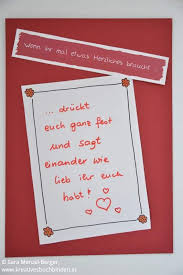 Wenn ihr mal etwas Herzliches braucht
... drückt
euch ganz fest
und sagt
einander wie
lieb ihr euch
habt!
© Sara Menzel-Berger
www.kreativesbuchbinden.at